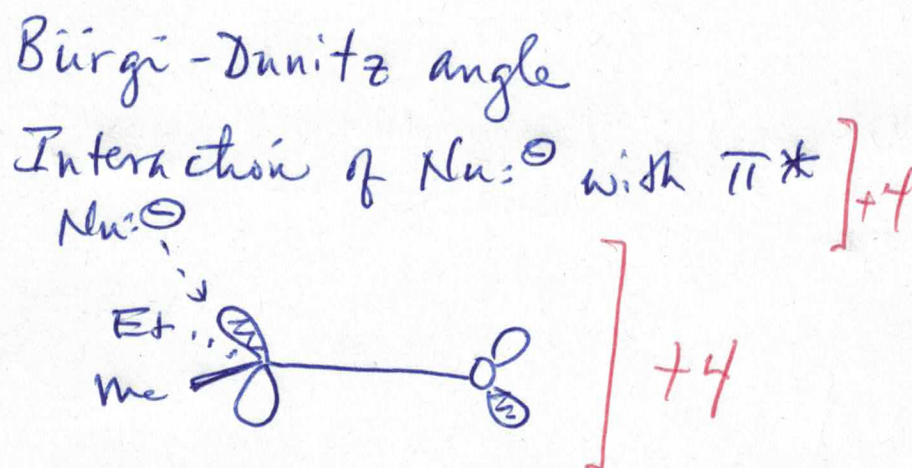 Bürgi-Dunitz angle
Interaction of Nu:⊖ with π*
+4
Nu:⊖
Et
Me
O
+4